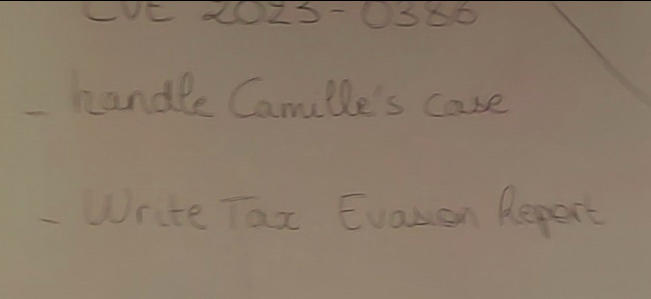 CVE 2023-0386
- handle Camille's case
- Write Tax Evasion Report